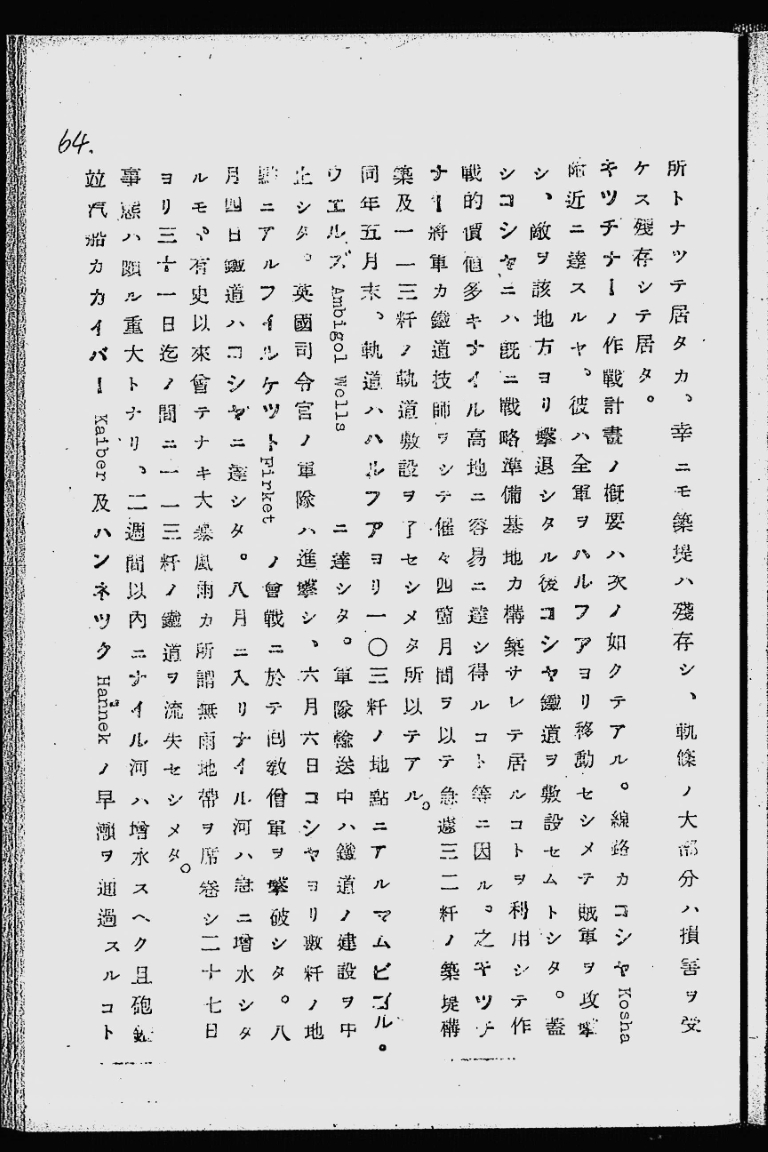 64.
所トナツテ居タカ、幸ニモ築堤ハ殘存シ、軌條ノ大部分ハ損害ヲ受
ケス殘存シテ居タ。
キツチナーノ作戰計畫ノ概要ハ次ノ如クテアル。線路カコシヤKosha
附近ニ達スルヤ、彼ハ全軍ヲハルフアヨリ移動セシメテ賊軍ヲ攻撃
シ、敵ヲ該地方ヨリ撃退シタル後コシヤ鐵道ヲ敷設セムトシタ。蓋
シコシヤニハ既ニ戰略準備基地カ構築サレテ居ルコトヲ利用シテ作
戰的價値多キナイル高地ニ容易ニ達シ得ルコト等ニ因ル。之キツチ
ナー將軍カ鐵道技師ヲシテ僅々四箇月間ヲ以テ急遽三二粁ノ築堤構
築及一一三粁ノ軌道敷設ヲ了セシメタ所以テアル。
同年五月末、軌道ハハルフアヨリ一〇三粁ノ地點ニアルマムビゴル。
ウエルズAmbigol Wellsニ達シタ。軍隊輸送中ハ鐵道ノ建設ヲ中
止シタ。英國司令官ノ軍隊ハ進撃シ、六月六日コシヤヨリ數粁ノ地
點ニアルフイルケツトFirketノ會戰ニ於テ回敎僧軍ヲ撃破シタ。八
月四日鐵道ハコシヤニ達シタ。八月ニ入リナイル河ハ急ニ增水シタ
ルモ、有史以來曾テナキ大暴風雨カ所謂無雨地帶ヲ席卷シ二十七日
ヨリ三十一日迄ノ間ニ一一三粁ノ鐵道ヲ流失セシメタ。
事態ハ頗ル重大トナリ、二週間以內ニナイル河ハ增水スヘク且砲艦
竝汽船カカイバーKaiber及ハンネツクHannekノ早瀬ヲ通過スルコト